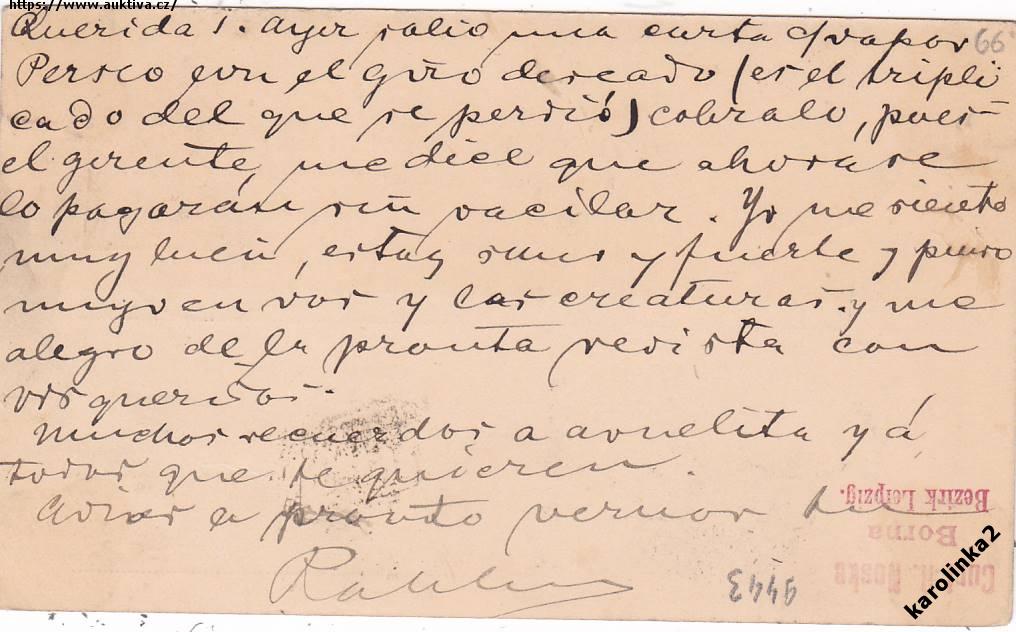 https://www.auktiva.cz/
Querida 1. Ayer salio una carta c/vapor 66
Persco con el giro deseado (es el tripli
cado del que se perdió) cobralo, pues
el gerente, me dice que ahora se
lo pagarán sin vacilar. Yo me siento
muy bien, estoy sano y fuerte y pienso
muy en vos y las creaturas. y me
alegro de la pronta revista con
vis queridos.
Muchos recuerdos a avuelita y á
todos que te quieren.
Adios a pronto vernos tu
9443
Bezirk Leipzig.
Borna
karolinka2